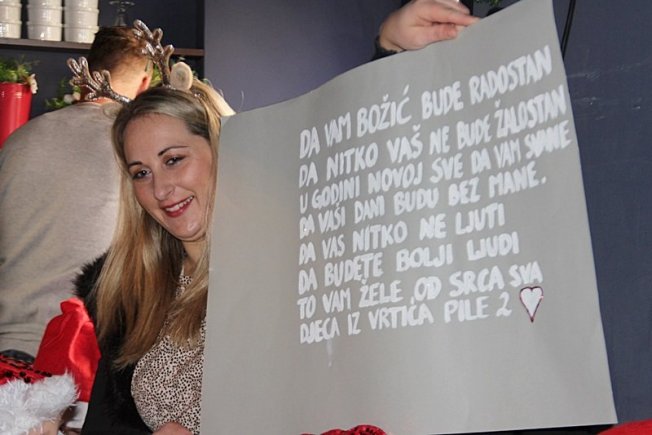 DA VAM BOŽIĆ BUDE RADOSTAN
DA NITKO VAŠ NE BUDE ŽALOSTAN
U GODINI NOVOJ SVE DA VAM SVANE
DA VAŠI DANI BUDU BEZ MANE.
DA VAS NITKO NE LJUTI
DA BUDETE BOLJI LJUDI
TO VAM ŽELE OD SRCA SVA
DJECA IZ VRTIĆA PILE 2